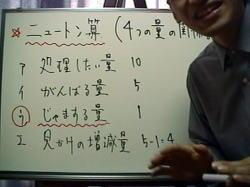 ☆ニュートン算 (4つの量の関係
ア 処理したい量 10
イ がんばる量 5
ウ じゃまする量 1
エ 見かけの増減量 5-1=4